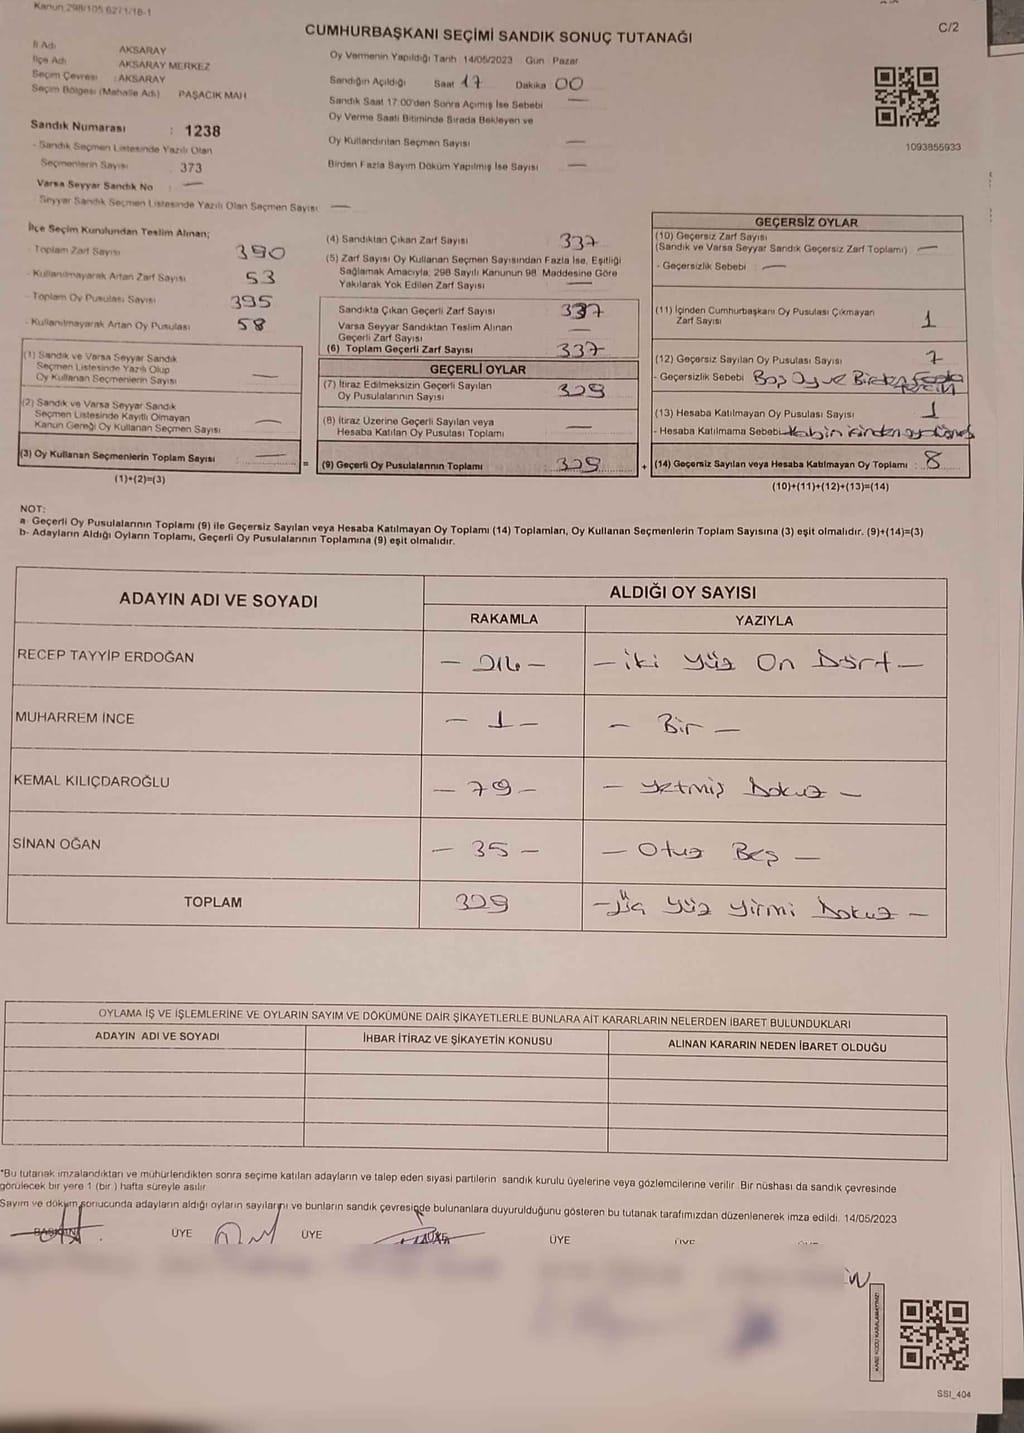 Kanun 298/105 6271/18-1
C/2
CUMHURBAŞKANI SEÇİMİ SANDIK SONUÇ TUTANAĞI
İl Adı AKSARAY
İlçe Adı AKSARAY MERKEZ
Seçim Çevresi : AKSARAY
Seçim Bölgesi (Mahalle Adı) PAŞACIK MAH
Sandık Numarası : 1238
- Sandık Seçmen Listesinde Yazılı Olan
Seçmenlerin Sayısı 373
Varsa Seyyar Sandık No : —
- Seyyar Sandık Seçmen Listesinde Yazılı Olan Seçmen Sayısı —
Oy Vermenin Yapıldığı Tarih 14/05/2023 Gün Pazar
Sandığın Açıldığı Saat 17 Dakika 00
Sandık Saat 17:00'den Sonra Açılmış İse Sebebi —
Oy Verme Saati Bitiminde Sırada Bekleyen ve
Oy Kullandırılan Seçmen Sayısı —
Birden Fazla Sayım Döküm Yapılmış İse Sayısı —
1093855933
İlçe Seçim Kurulundan Teslim Alınan;
- Toplam Zarf Sayısı 390
- Kullanılmayarak Artan Zarf Sayısı 53
- Toplam Oy Pusulası Sayısı 395
- Kullanılmayarak Artan Oy Pusulası 58
(1) Sandık ve Varsa Seyyar Sandık
Seçmen Listesinde Yazılı Olup
Oy Kullanan Seçmenlerin Sayısı —
(2) Sandık ve Varsa Seyyar Sandık
Seçmen Listesinde Kayıtlı Olmayan
Kanun Gereği Oy Kullanan Seçmen Sayısı —
(3) Oy Kullanan Seçmenlerin Toplam Sayısı : —
(1)+(2)=(3)
(4) Sandıktan Çıkan Zarf Sayısı 337
(5) Zarf Sayısı Oy Kullanan Seçmen Sayısından Fazla İse, Eşitliği
Sağlamak Amacıyla; 298 Sayılı Kanunun 98. Maddesine Göre
Yakılarak Yok Edilen Zarf Sayısı —
Sandıkta Çıkan Geçerli Zarf Sayısı 337
Varsa Seyyar Sandıktan Teslim Alınan
Geçerli Zarf Sayısı —
(6) Toplam Geçerli Zarf Sayısı 337
GEÇERLİ OYLAR
(7) İtiraz Edilmeksizin Geçerli Sayılan
Oy Pusulalarının Sayısı 329
(8) İtiraz Üzerine Geçerli Sayılan veya
Hesaba Katılan Oy Pusulası Toplamı —
= (9) Geçerli Oy Pusulalarının Toplamı 329
GEÇERSİZ OYLAR
(10) Geçersiz Zarf Sayısı
(Sandık ve Varsa Seyyar Sandık Geçersiz Zarf Toplamı) —
- Geçersizlik Sebebi : —
(11) İçinden Cumhurbaşkanı Oy Pusulası Çıkmayan
Zarf Sayısı 1
(12) Geçersiz Sayılan Oy Pusulası Sayısı 7
- Geçersizlik Sebebi Boş Oy ve Birden Fazla
Tercih
(13) Hesaba Katılmayan Oy Pusulası Sayısı 1
- Hesaba Katılmama Sebebi
+ (14) Geçersiz Sayılan veya Hesaba Katılmayan Oy Toplamı : 8
(10)+(11)+(12)+(13)=(14)
NOT:
a- Geçerli Oy Pusulalarının Toplamı (9) ile Geçersiz Sayılan veya Hesaba Katılmayan Oy Toplamı (14) Toplamları, Oy Kullanan Seçmenlerin Toplam Sayısına (3) eşit olmalıdır. (9)+(14)=(3)
b- Adayların Aldığı Oyların Toplamı, Geçerli Oy Pusulalarının Toplamına (9) eşit olmalıdır.
ADAYIN ADI VE SOYADI ALDIĞI OY SAYISI
RAKAMLA YAZIYLA
RECEP TAYYİP ERDOĞAN — 214 — — iki yüz On Dört —
MUHARREM İNCE — 1 — — Bir —
KEMAL KILIÇDAROĞLU — 79 — — yetmiş Dokuz —
SİNAN OĞAN — 35 — — Otuz Beş —
TOPLAM 329 — Üç yüz yirmi Dokuz —
OYLAMA İŞ VE İŞLEMLERİNE VE OYLARIN SAYIM VE DÖKÜMÜNE DAİR ŞİKAYETLERLE BUNLARA AİT KARARLARIN NELERDEN İBARET BULUNDUKLARI
ADAYIN ADI VE SOYADI İHBAR İTİRAZ VE ŞİKAYETİN KONUSU ALINAN KARARIN NEDEN İBARET OLDUĞU
*Bu tutanak imzalandıktan ve mühürlendikten sonra seçime katılan adayların ve talep eden siyasi partilerin sandık kurulu üyelerine veya gözlemcilerine verilir. Bir nüshası da sandık çevresinde
görülecek bir yere 1 (bir ) hafta süreyle asılır
Sayım ve döküm sonucunda adayların aldığı oyların sayılarını ve bunların sandık çevresinde bulunanlara duyurulduğunu gösteren bu tutanak tarafımızdan düzenlenerek imza edildi. 14/05/2023
BAŞKAN ÜYE ÜYE ÜYE ÜYE
KARE KODU KARALAMAYINIZ!
SSI_404